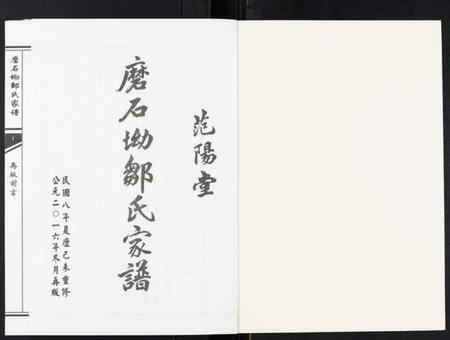 范陽堂
磨石坳鄒氏家譜
民國八年夏曆己未重修
公元二〇一六年冬月再版
磨石坳鄒氏家谱
1
再版前言